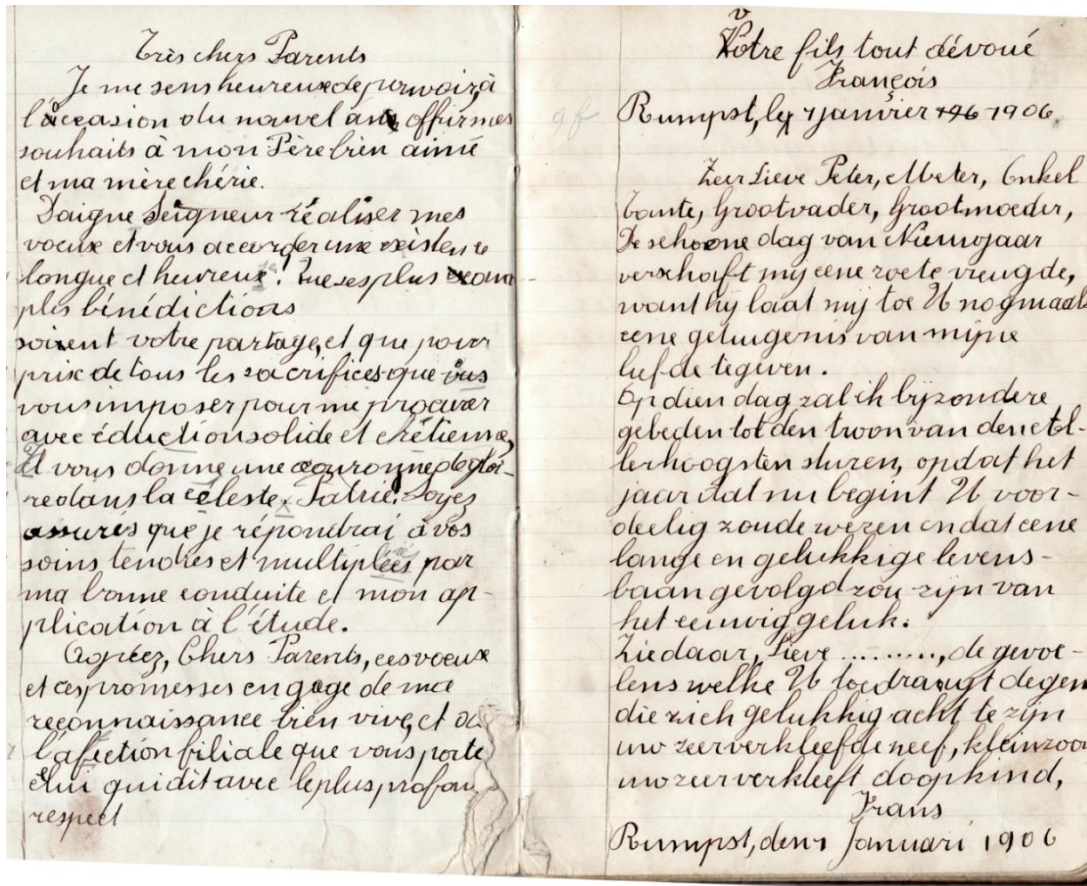 Très chers Parents
Je me sens heureux de pouvoir, à
l'occasion du nouvel an, offrir mes
souhaits à mon Père bien aimé
et ma mère chérie.
Daigne Seigneur réaliser mes
voeux et vous accorder une existence
longue et heureuse! Que ses plus
ples bénédictions
soient votre partage, et que pour
prix de tous les sacrifices que vous
vous imposer pour me procurer
avec éduction solide et crétienne,
Il vous donne une couronne de gloi-
re dans la céleste Patrie. Soyez
assures que je répondrai à vos
soins tendres et multiplées par
ma bonne conduite et mon ap-
plication à l'étude.
Agréez, Chers Parents, ces voeux
et ces promesses en gage de ma
reconnaissance bien vive, et de
l'afection filiale que vous porte
celui qui dit avec le plus profond
respect
Votre fils tout dévoué
François
Rumpst, le 1 janvier 1906.
Zeer Lieve Peter, Meter, Onkel
Tante, Grootvader, Grootmoeder,
De schoone dag van Nieuwjaar
verschaft mij eene zoete vreugde,
want hij laat mij toe U nogmaals
eene getuigenis van mijne
liefde te geven.
Op dien dag zal ik bijzondere
gebeden tot den troon van den Al-
lerhoogsten sturen, opdat het
jaar dat nu begint U voor-
deelig zoude wezen en dat eene
lange en gelukkige levens-
baan gevolgd zou zijn van
het eeuwig geluk.
Ziedaar, Lieve ........., de gevoe-
lens welke U toedraagt degen
die zich gelukkig acht te zijn
uw zeer verkleefde neef, kleinzoon
uw zeer verkleeft doopkind,
Frans
Rumpst, den 1 Januari 1906